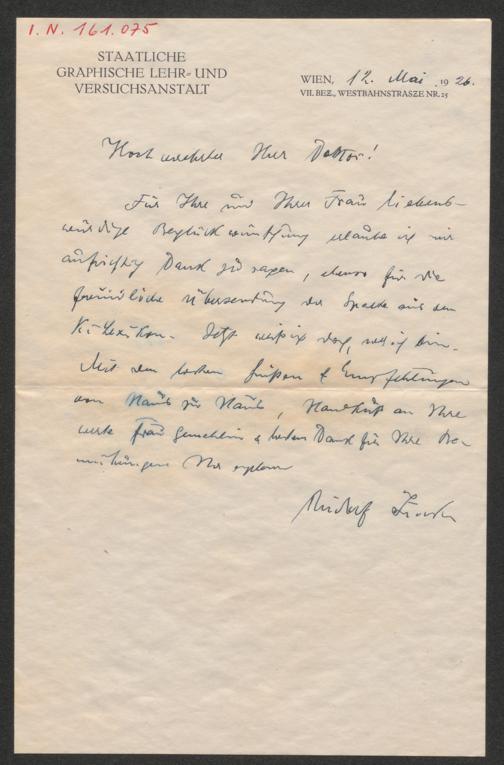 I. N. 161.075
STAATLICHE
GRAPHISCHE LEHR- UND
VERSUCHSANSTALT
WIEN, 12. Mai 1926.
VII. BEZ., WESTBAHNSTRASZE NR. 25
Hochverehrter Herr Doktor!
Für Ihre und Ihrer Frau liebens-
würdige Beglückwünschung erlaube ich mir
aufrichtig Dank zu sagen, ebenso für die
freundliche Übersendung der Spalte aus dem
Lexikon. Jetzt weiß ich doch, wer ich bin.
Mit den besten Grüßen & Empfehlungen
von Haus zu Haus, Handkuß an Ihre
werte Frau Gemahlin & besten Dank für Ihre Be-
mühungen Ihr ergebener
Rudolf